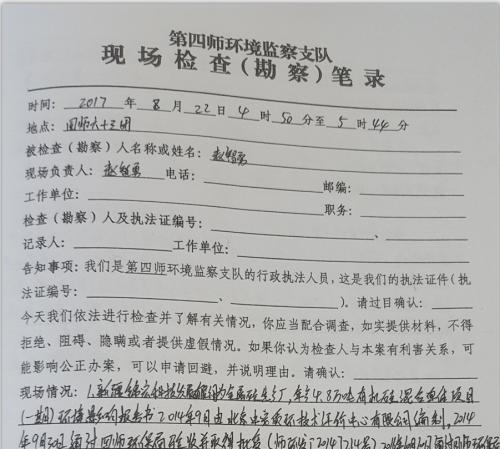 第四师环境监察支队
现场检查（勘察）笔录
时间： 2017 年 8 月 22 日 4 时 50 分至 5 时 44 分
地点： 四师六十三团
被检查（勘察）人名称或姓名：
现场负责人： 电话： 邮编：
工作单位： 职务：
检查（勘察）人及执法证编号： 、
记录人： 工作单位：
告知事项：我们是第四师环境监察支队的行政执法人员，这是我们的执法证件（执
法证编号： 、 ）。请过目确认：
今天我们依法进行检查并了解有关情况，你应当配合调查，如实提供材料，不得
拒绝、阻碍、隐瞒或者提供虚假情况。如果你认为检查人与本案有利害关系，可
能影响公正办案，可以申请回避，并说明理由。请确认：
现场情况： 1.新疆 年 4.8万吨有机硅 项目
(一期)环境影响报告书2014年9月由北京 环技术评价中心有限公司编制，2014
年9月 通过四师环保局 并取得批复